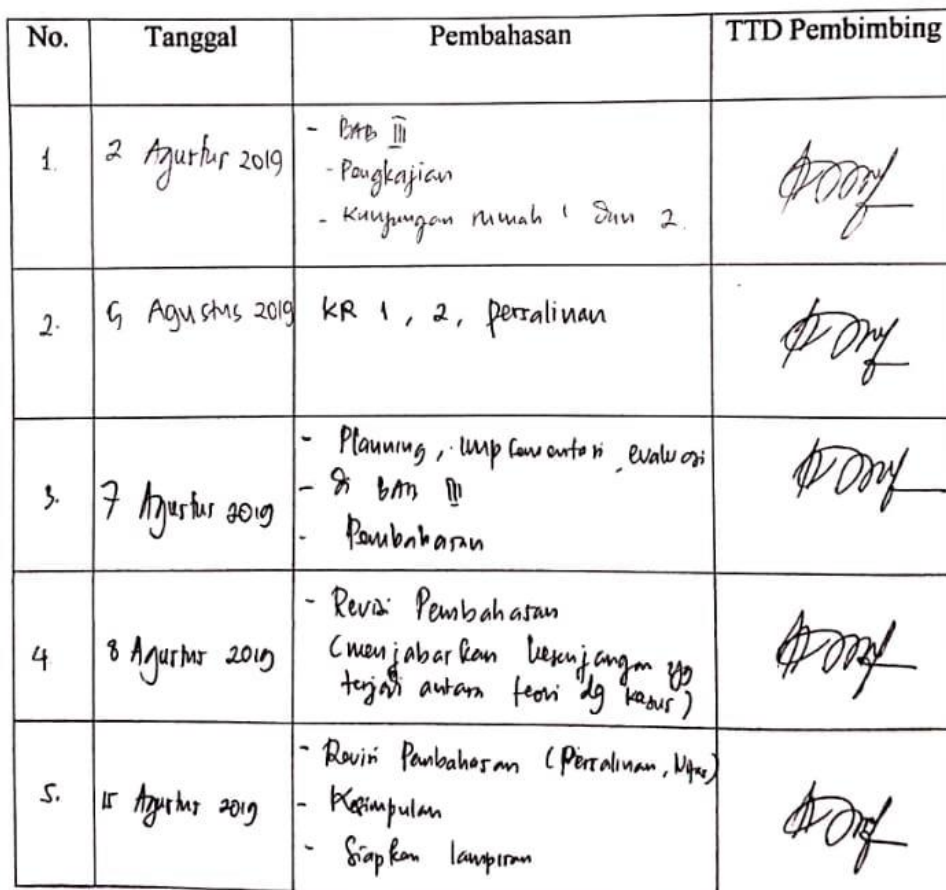 No. Tanggal Pembahasan TTD Pembimbing
1. 2 Agustus 2019
- BAB III
- Pengkajian
- Kunjungan rumah 1 dan 2.
2. Agustus 2019 KR 1, 2, persalinan
3. 7 Agustus 2019
- Planning, implementasi, evaluasi
- di BAB III
- Pembahasan
4 8 Agustus 2019
- Revisi Pembahasan
(menjabarkan kesenjangan yg
terjadi antara teori dg kasus)
5. 15 Agustus 2019
- Revisi Pembahasan (Persalinan, Nifas)
- Kesimpulan
- Siapkan lampiran